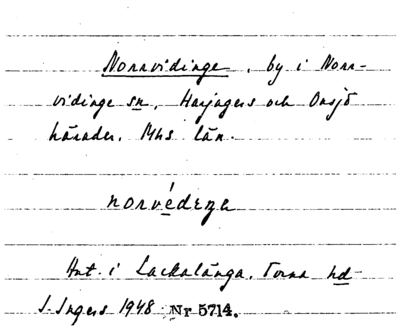 Norrvidinge, by i Norr-
vidinge sn, Harjagers och Onsjö
härader. Mhs län.
norvédeŋa
Hnt. i Lackalänga, Torna hd
I. Ingers 1948 Nr 5714.